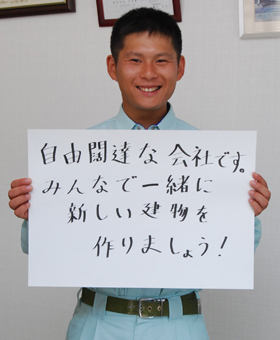 自由闊達な会社です。
みんなで一緒に
新しい建物を
作りましょう!